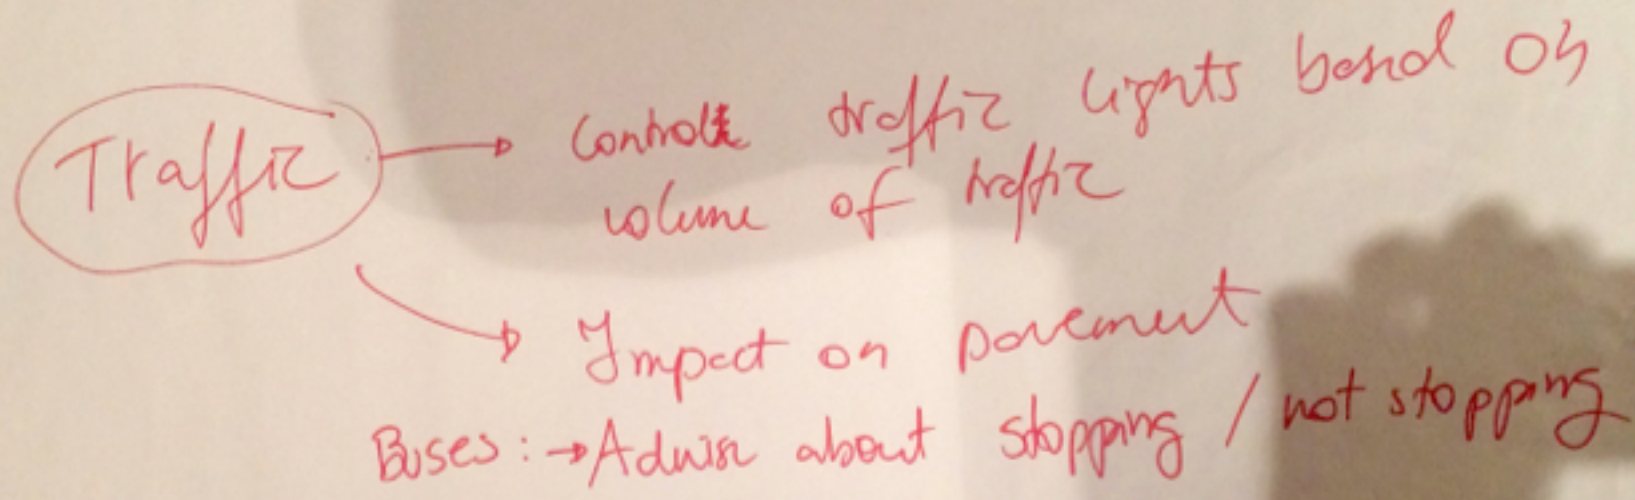 Traffic → Control traffic lights based on
volume of traffic
→ Impact on pavement
Buses: → Advise about stopping / not stopping